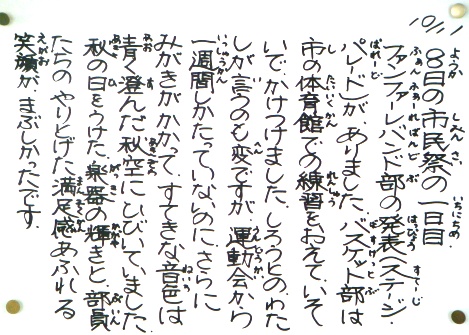 10/11
8日の市民祭の一日目
ファンファーレバンド部の発表(ステージ
パレード)が、ありました。バスケット部は
市の体育館での練習をおえて、いそ
いで、かけつけました。しろうとの、わた
しが言うのも変ですが、運動会から
一週間しかたっていないのに、さらに
みがきがかかって、すてきな音色は
青く澄んだ秋空にひびいていました。
秋の日をうけた楽器の輝きと、部員
たちの やりとげた満足感あふれる
笑顔が、まぶしかったです。